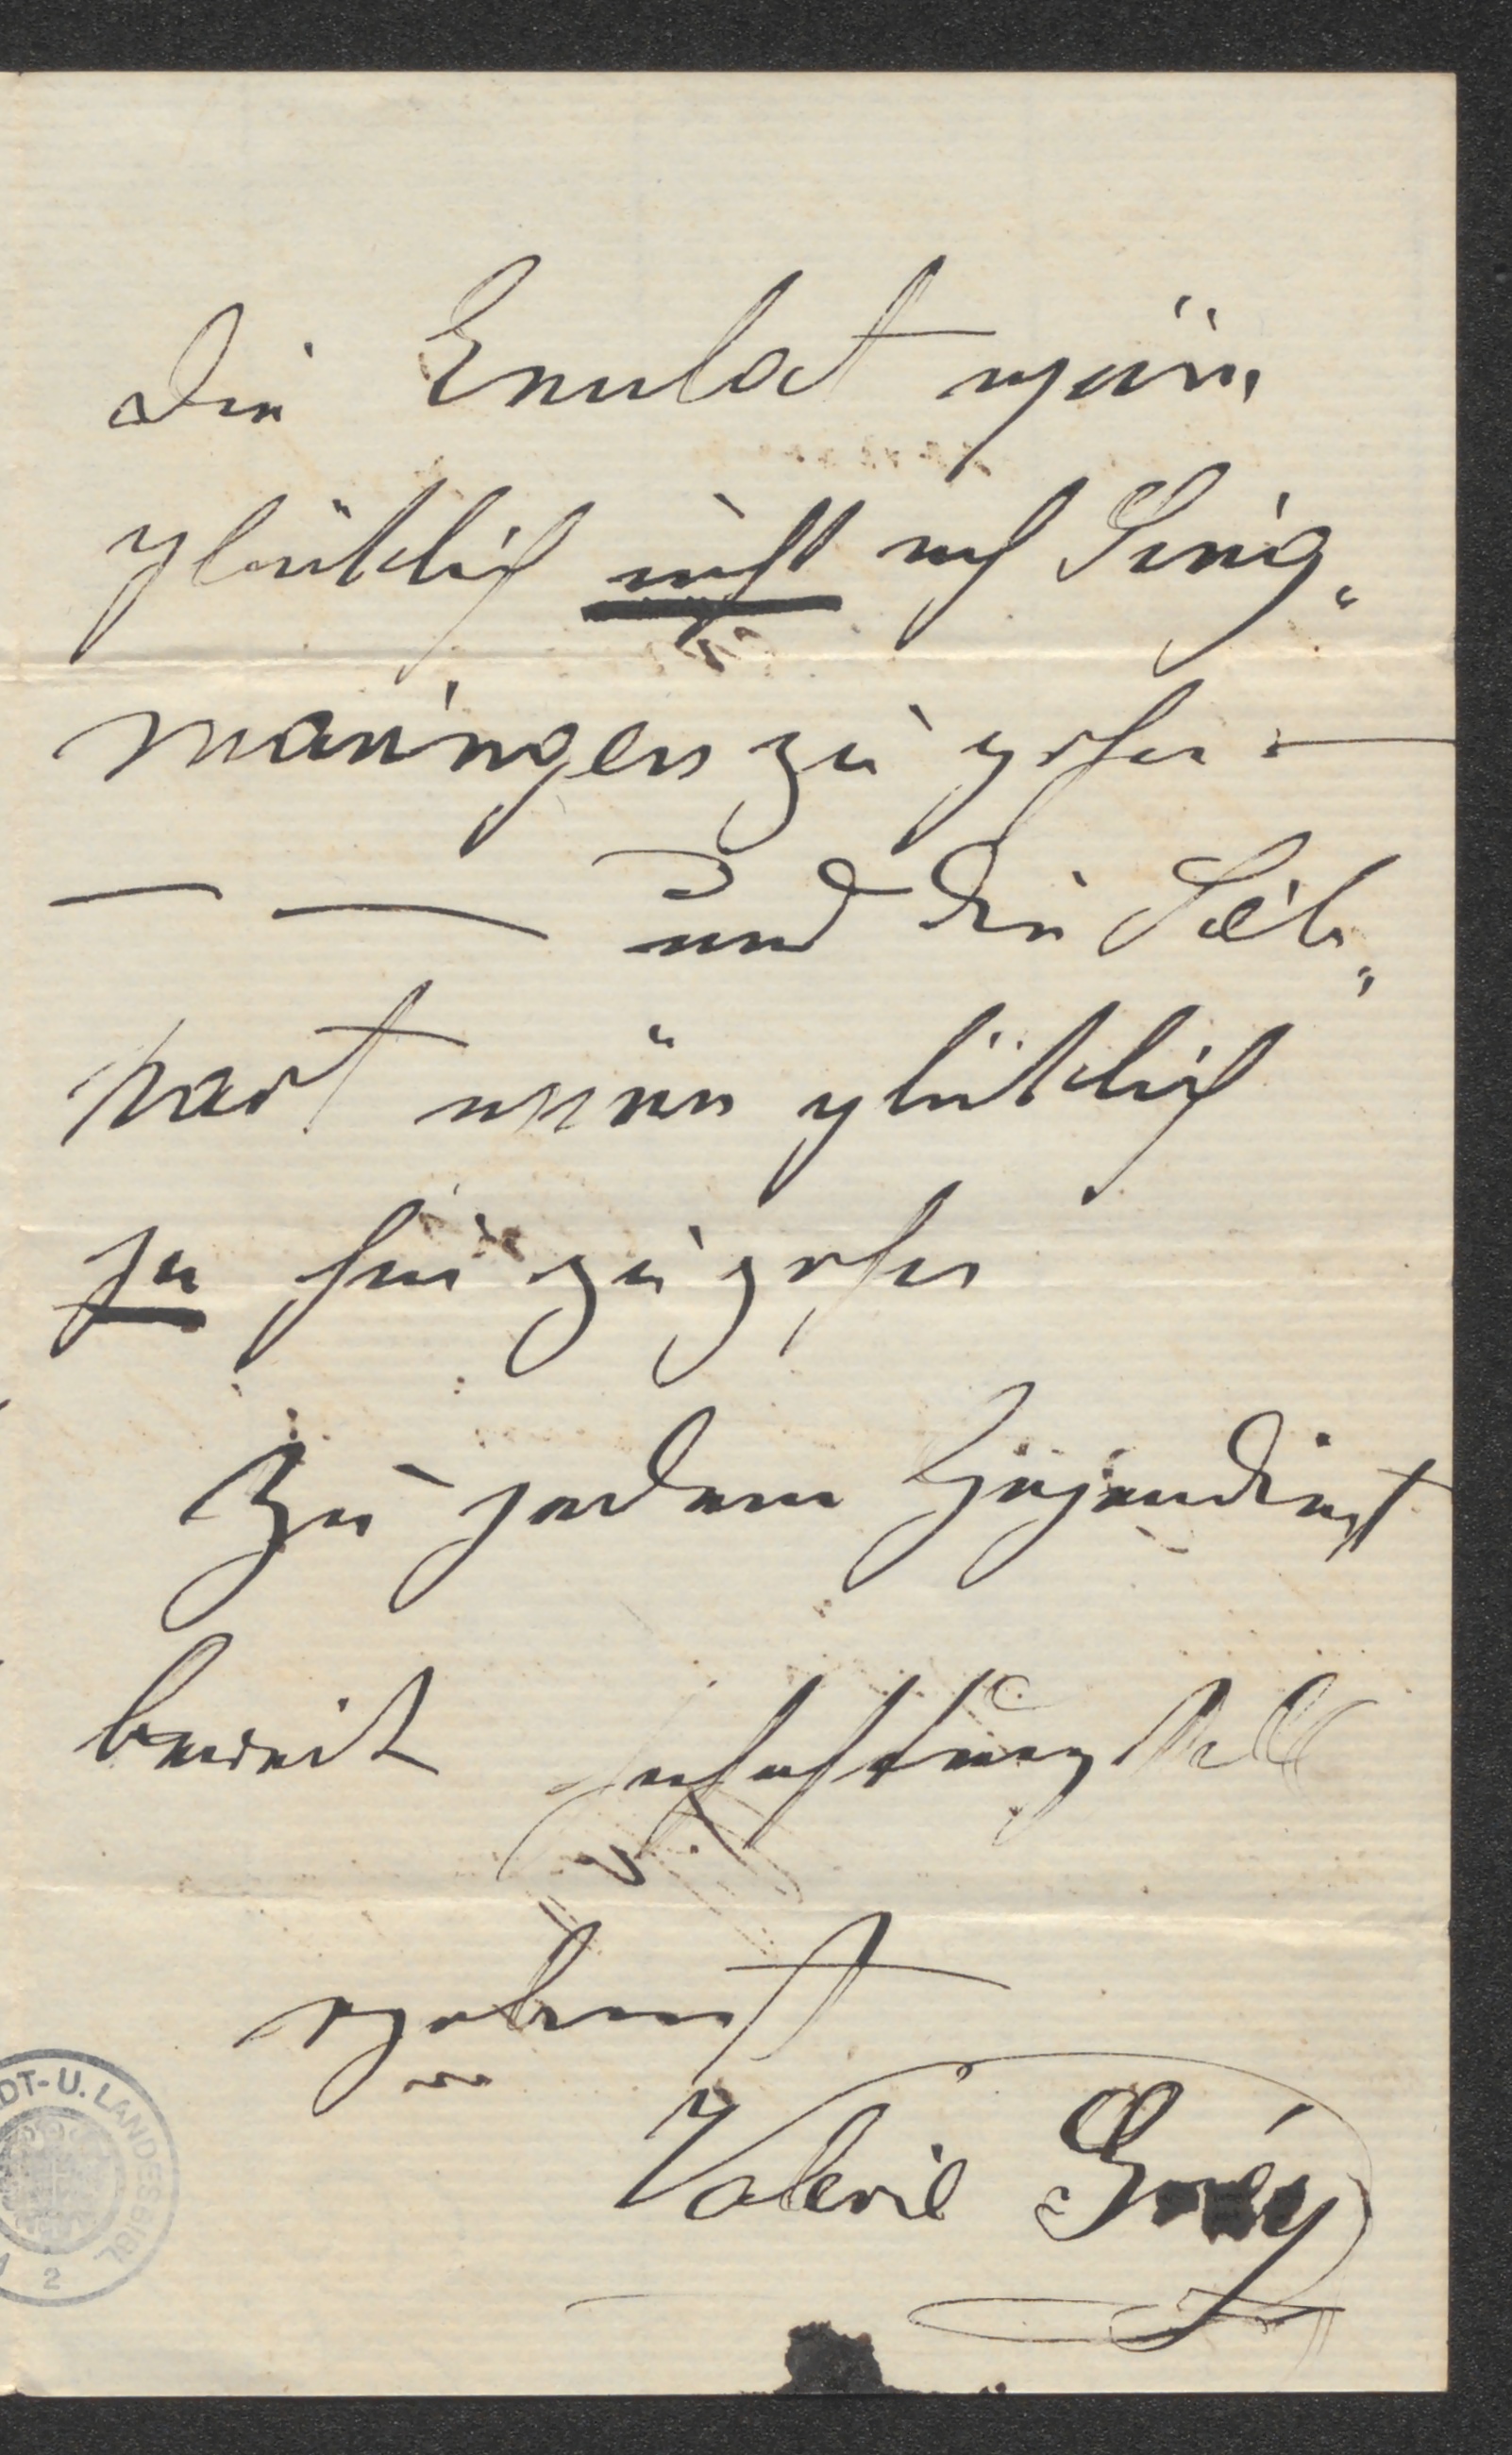 Die Enulat wäre
glücklich nicht nach Sing„
maringen zu gehen –
— — und die Seeb„
hart wäre glücklich
ja hin zu gehen
Zu jedem Gegendienst
bereit hochachtungsvoll
ergebenst
Valerie Gréy
DT-U. LANDESBIBL
2